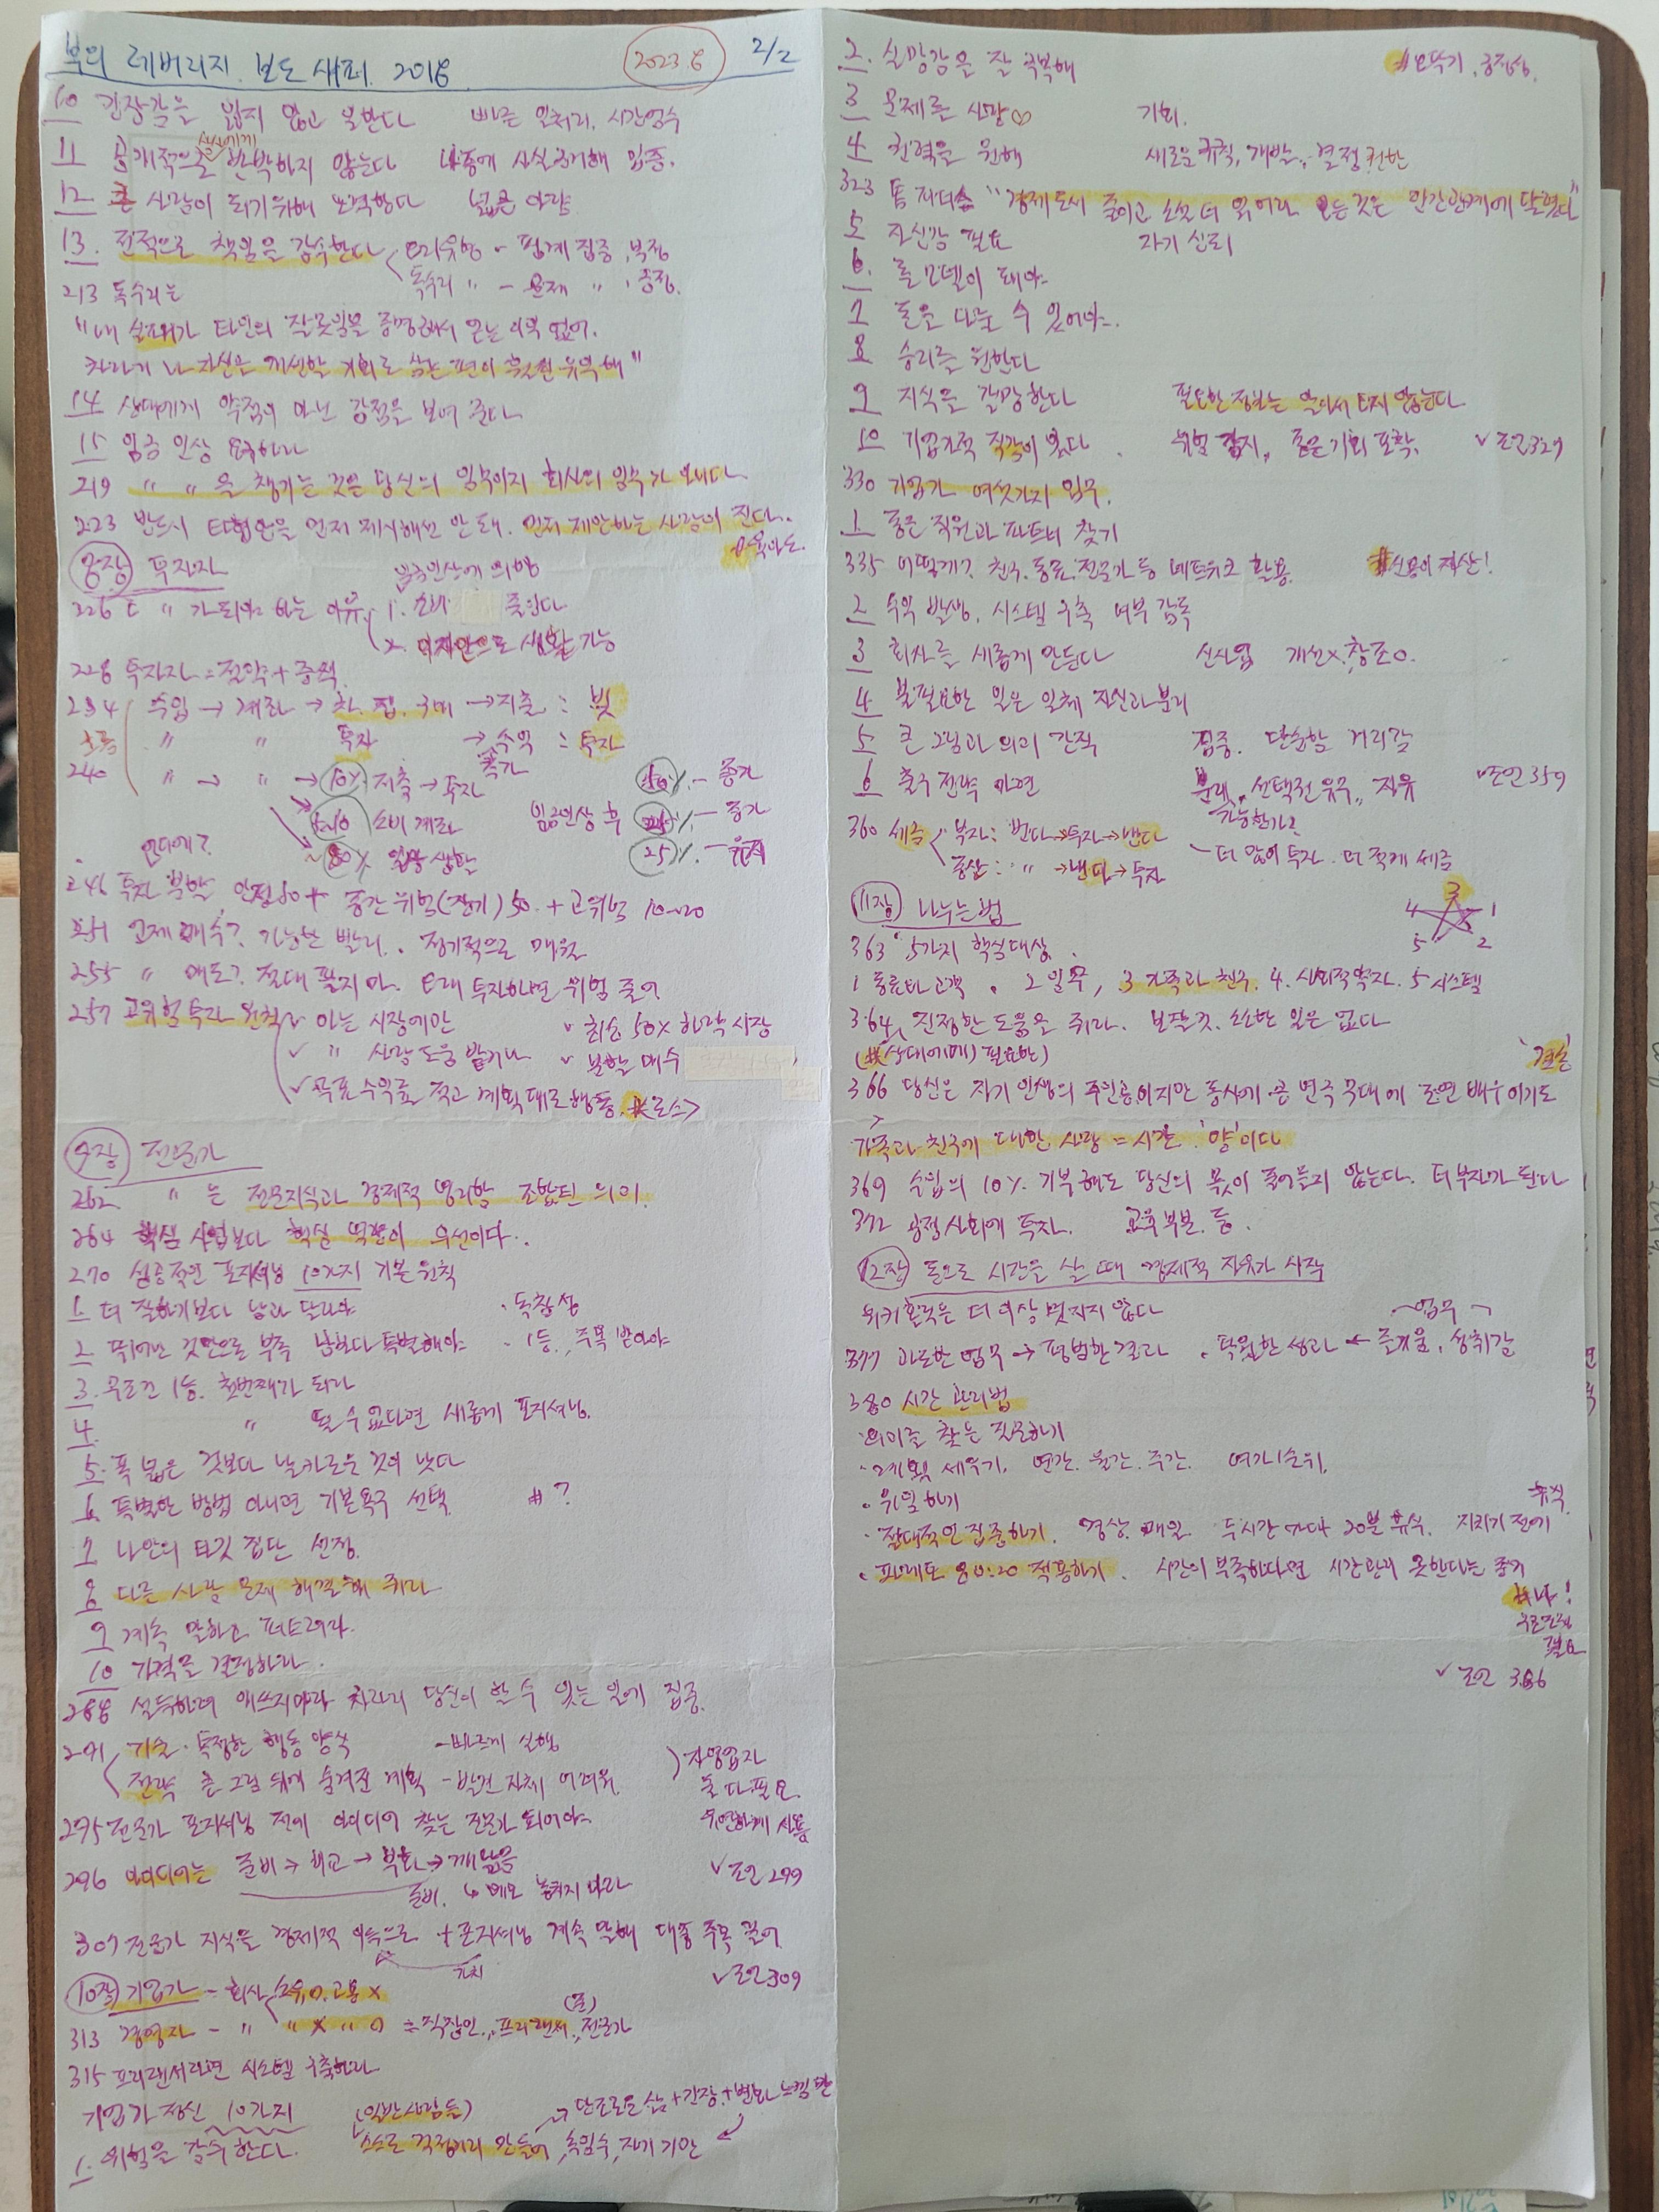 부의 레버리지. 보도 섀퍼. 2018 2023.6 2/2
10 긴장감을 잃지 않고 일한다 빠른 일처리, 시간엄수
11 공개적으로 상사에게 반박하지 않는다 나중에 사실 근거해 입증.
12. 큰 사람이 되기 위해 노력한다 넓은 아량
13. 전적으로 책임을 감수한다 오리유형 - 핑계 집중, 부정
독수리 " - 문제 " , 긍정.
213 독수리는
"내 실패가 타인의 잘못임을 증명해서 얻는 이익 없어.
차라리 나 자신을 개선할 기회로 삼는 편이 훨씬 유익해"
14 상대에게 약점이 아닌 강점을 보여 준다
15 임금 인상 요구하라
219 " " 을 챙기는 것은 당신의 임무이지 회사의 임무가 아니다
223 반드시 타협안을 먼저 제시해선 안 돼. 먼저 제안하는 사람이 진다.
8장 투자자 임금인상에 의해
226 " 가 되어야 하는 이유 1. 소비 줄인다
2. 이자만으로 생활 가능
228 투자자 = 절약 + 증식
234 수입 → 계좌 → 차. 집. 구매 → 지출 : 빚
" " 투자 → 수익 : 투자
240 " → " → 10% 저축 → 투자 50% - 증가
5~10 소비 계좌 임금인상 후 25% - 증가
~80% 일상생활 25% - 유지
246 투자 분할 안정 50 + 중간위험(장기) 50 + 고위험 10~20
251 언제 매수? 가능한 빨리. 정기적으로 매월
255 " 매도? 절대 팔지 마. 오래 투자하면 위험 줄어
257 고위험 투자 원칙 ✓ 아는 시장에만 ✓ 최소 50% 하락 시장
✓ " 사람 도움 받거나 ✓ 분할 매수
✓ 목표 수익률 적고 계획대로 행동.
9장 전문가
262 " 는 전문지식과 경제적 영리함 조합된 의미.
264 핵심 사업보다 핵심 역량이 우선이다.
270 성공적인 포지셔닝 10가지 기본 원칙
1. 더 잘하기보다 남과 달라야 · 독창성
2 뛰어난 것만으로 부족 남보다 특별해야 · 1등, 주목 받아야
3. 무조건 1등. 첫번째가 되라
4. " 될 수 없다면 새롭게 포지셔닝.
5. 폭 넓은 것보다 날카로운 것이 낫다
6 특별한 방법 아니면 기본욕구 선택 # ?
7 나만의 타깃 집단 선정.
8 다른 사람 문제 해결해 줘라
9 계속 말하고 퍼트려라.
10 가격을 결정하라.
288 설득하려 애쓰지마라 차라리 당신이 할 수 있는 일에 집중.
291 기술 · 특정한 행동 양식 - 빠르게 실행 자영업자
전략 큰 그림 뒤에 숨겨진 계획 - 발견 자체 어려워. 둘 다 필요
295 전문가 포지셔닝 전에 아이디어 찾는 전문가 되어야
296 아이디어는 준비 → 숙고 → 부화 → 깨달음 ✓ 조언 299
준비. 메모 놓치지 마라
307 전문가 지식을 경제적 이익으로 + 포지셔닝 계속 말해 대중 주목 끌어
가치 ✓ 조언 309
10장 기업가 - 회사 소유 O. 고용 X
313 경영자 - " " X " O = 직장인, 프리랜서, 전문가
315 프리랜서라면 시스템 구축하라
기업가 정신 10가지 (일반사람들) → 단조로운 삶 + 긴장 + 변화 느낌 만
1. 위험을 감수한다. 스스로 걱정거리 만들어, 속임수, 자기 기만
2. 실망감을 잘 극복해 #오뚝이, 긍정성.
3 문제를 사랑♡ 기회.
4 권력을 원해 새로운 규칙, 개발, 결정 권한
323 톰 피터스 "경제 도서 줄이고 소설 더 읽어라 모든 것은 인간관계에 달렸다"
5 자신감 필요 자기 신뢰
6. 롤모델이 돼야
7 돈을 다룰 수 있어야.
8 승리를 원한다
9 지식을 갈망한다 필요한 정보는 알아서 오지 않는다
10 기업가적 직감이 있다. 위험 감지, 좋은 기회 포착. ✓ 조언 329
330 기업가 여섯가지 임무.
1. 좋은 직원과 파트너 찾기
335 어떻게? 친구. 동료. 전문가 등 네트워크 활용. #신용이 자산!
2 수익 발생. 시스템 구축 여부 감독
3 회사를 새롭게 만든다 신사업 개선X, 창조O.
4 불필요한 일은 일체 자신과 분리
5 큰 그림과 의미 간직 집중. 단순함 거리감
6 출구 전략 마련 분래, 선택권 유무, 자유 ✓ 조언 359
가능한가?
360 세금 부자: 번다→투자→낸다
중산: " →낸다→투자 - 더 많이 투자. 더 적게 세금
11장 나누는 법 3
4 1
363 5가지 핵심대상. 5 2
1 동료나 고객. 2 임무, 3 가족과 친구. 4. 사회적 약자. 5 시스템
364 진정한 도움을 줘라. 보잘것. 소소한 일은 없다
(#상대에게) 필요한) 결혼
366 당신은 자기 인생의 주인공이지만 동시에 큰 연극 무대에 조연 배우이기도
가족과 친구에 대한 사랑 = 시간 '양'이다
369 수입의 10% 기부해도 당신의 몫이 줄어들지 않는다. 더 부자가 된다
372 공정 사회에 투자. 교육 부분 등.
12장 돈으로 시간을 살 때 경제적 자유가 시작
워커홀릭은 더 이상 멋지지 않다 업무
377 과도한 업무 → 평범한 결과. 탁월한 성과 ← 즐거움, 성취감
380 시간 관리법
· 의미를 찾는 질문하기
· 계획 세우기. 연간. 월간. 주간.
· 위임하기 휴식.
· 절대적인 집중하기. 경상. 매일. 두시간마다 20분 휴식. 지치기 전에
· 파레토 80:20 적용하기. 시간이 부족하다면 시간관리 못한다는 증거
#나!
필요
✓ 조언 386